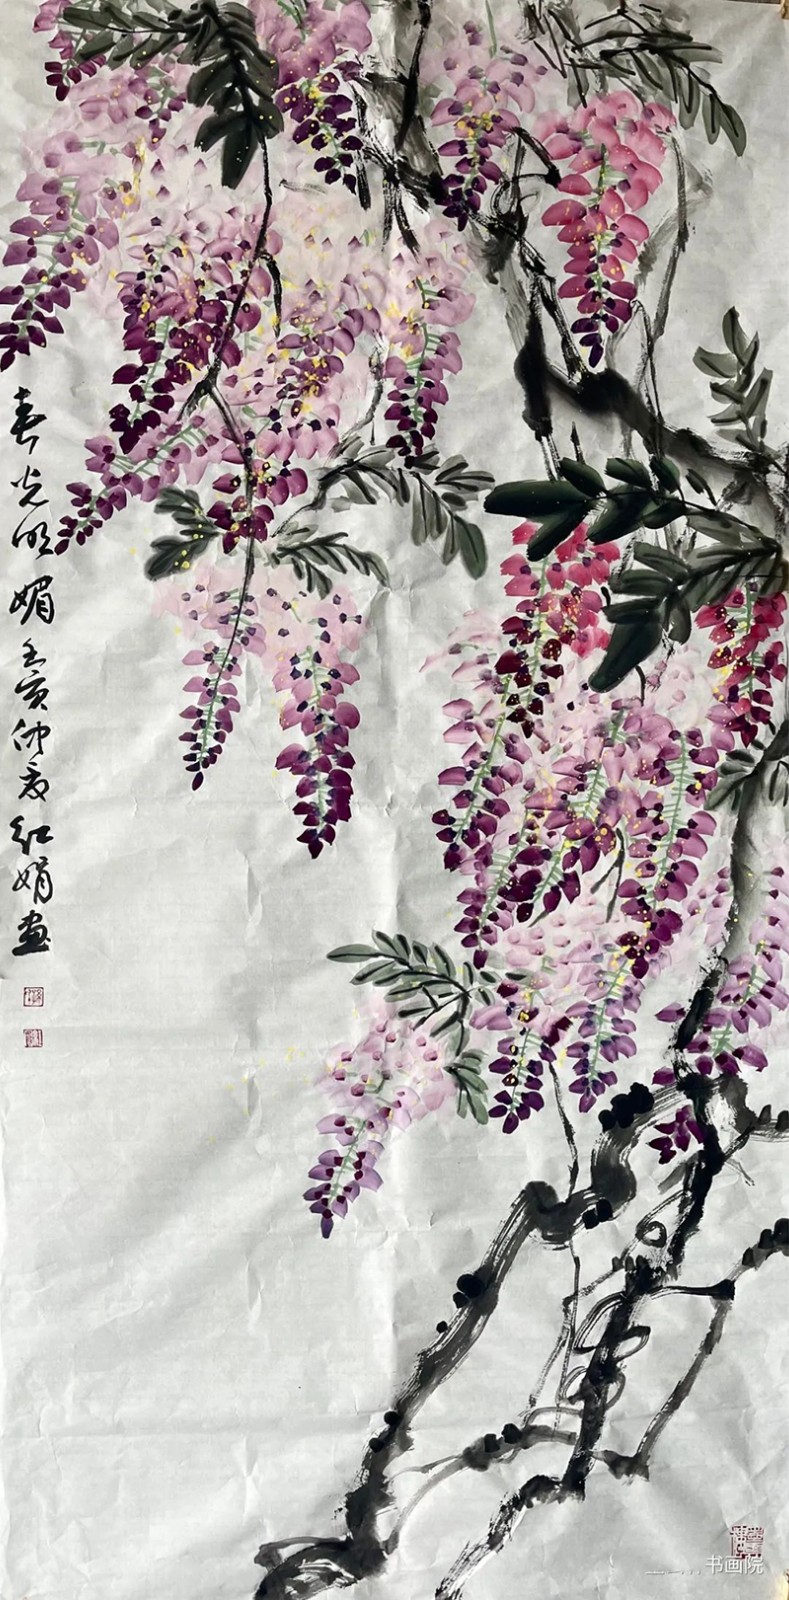 春光明媚 壬寅仲夏 红娟画
书画院